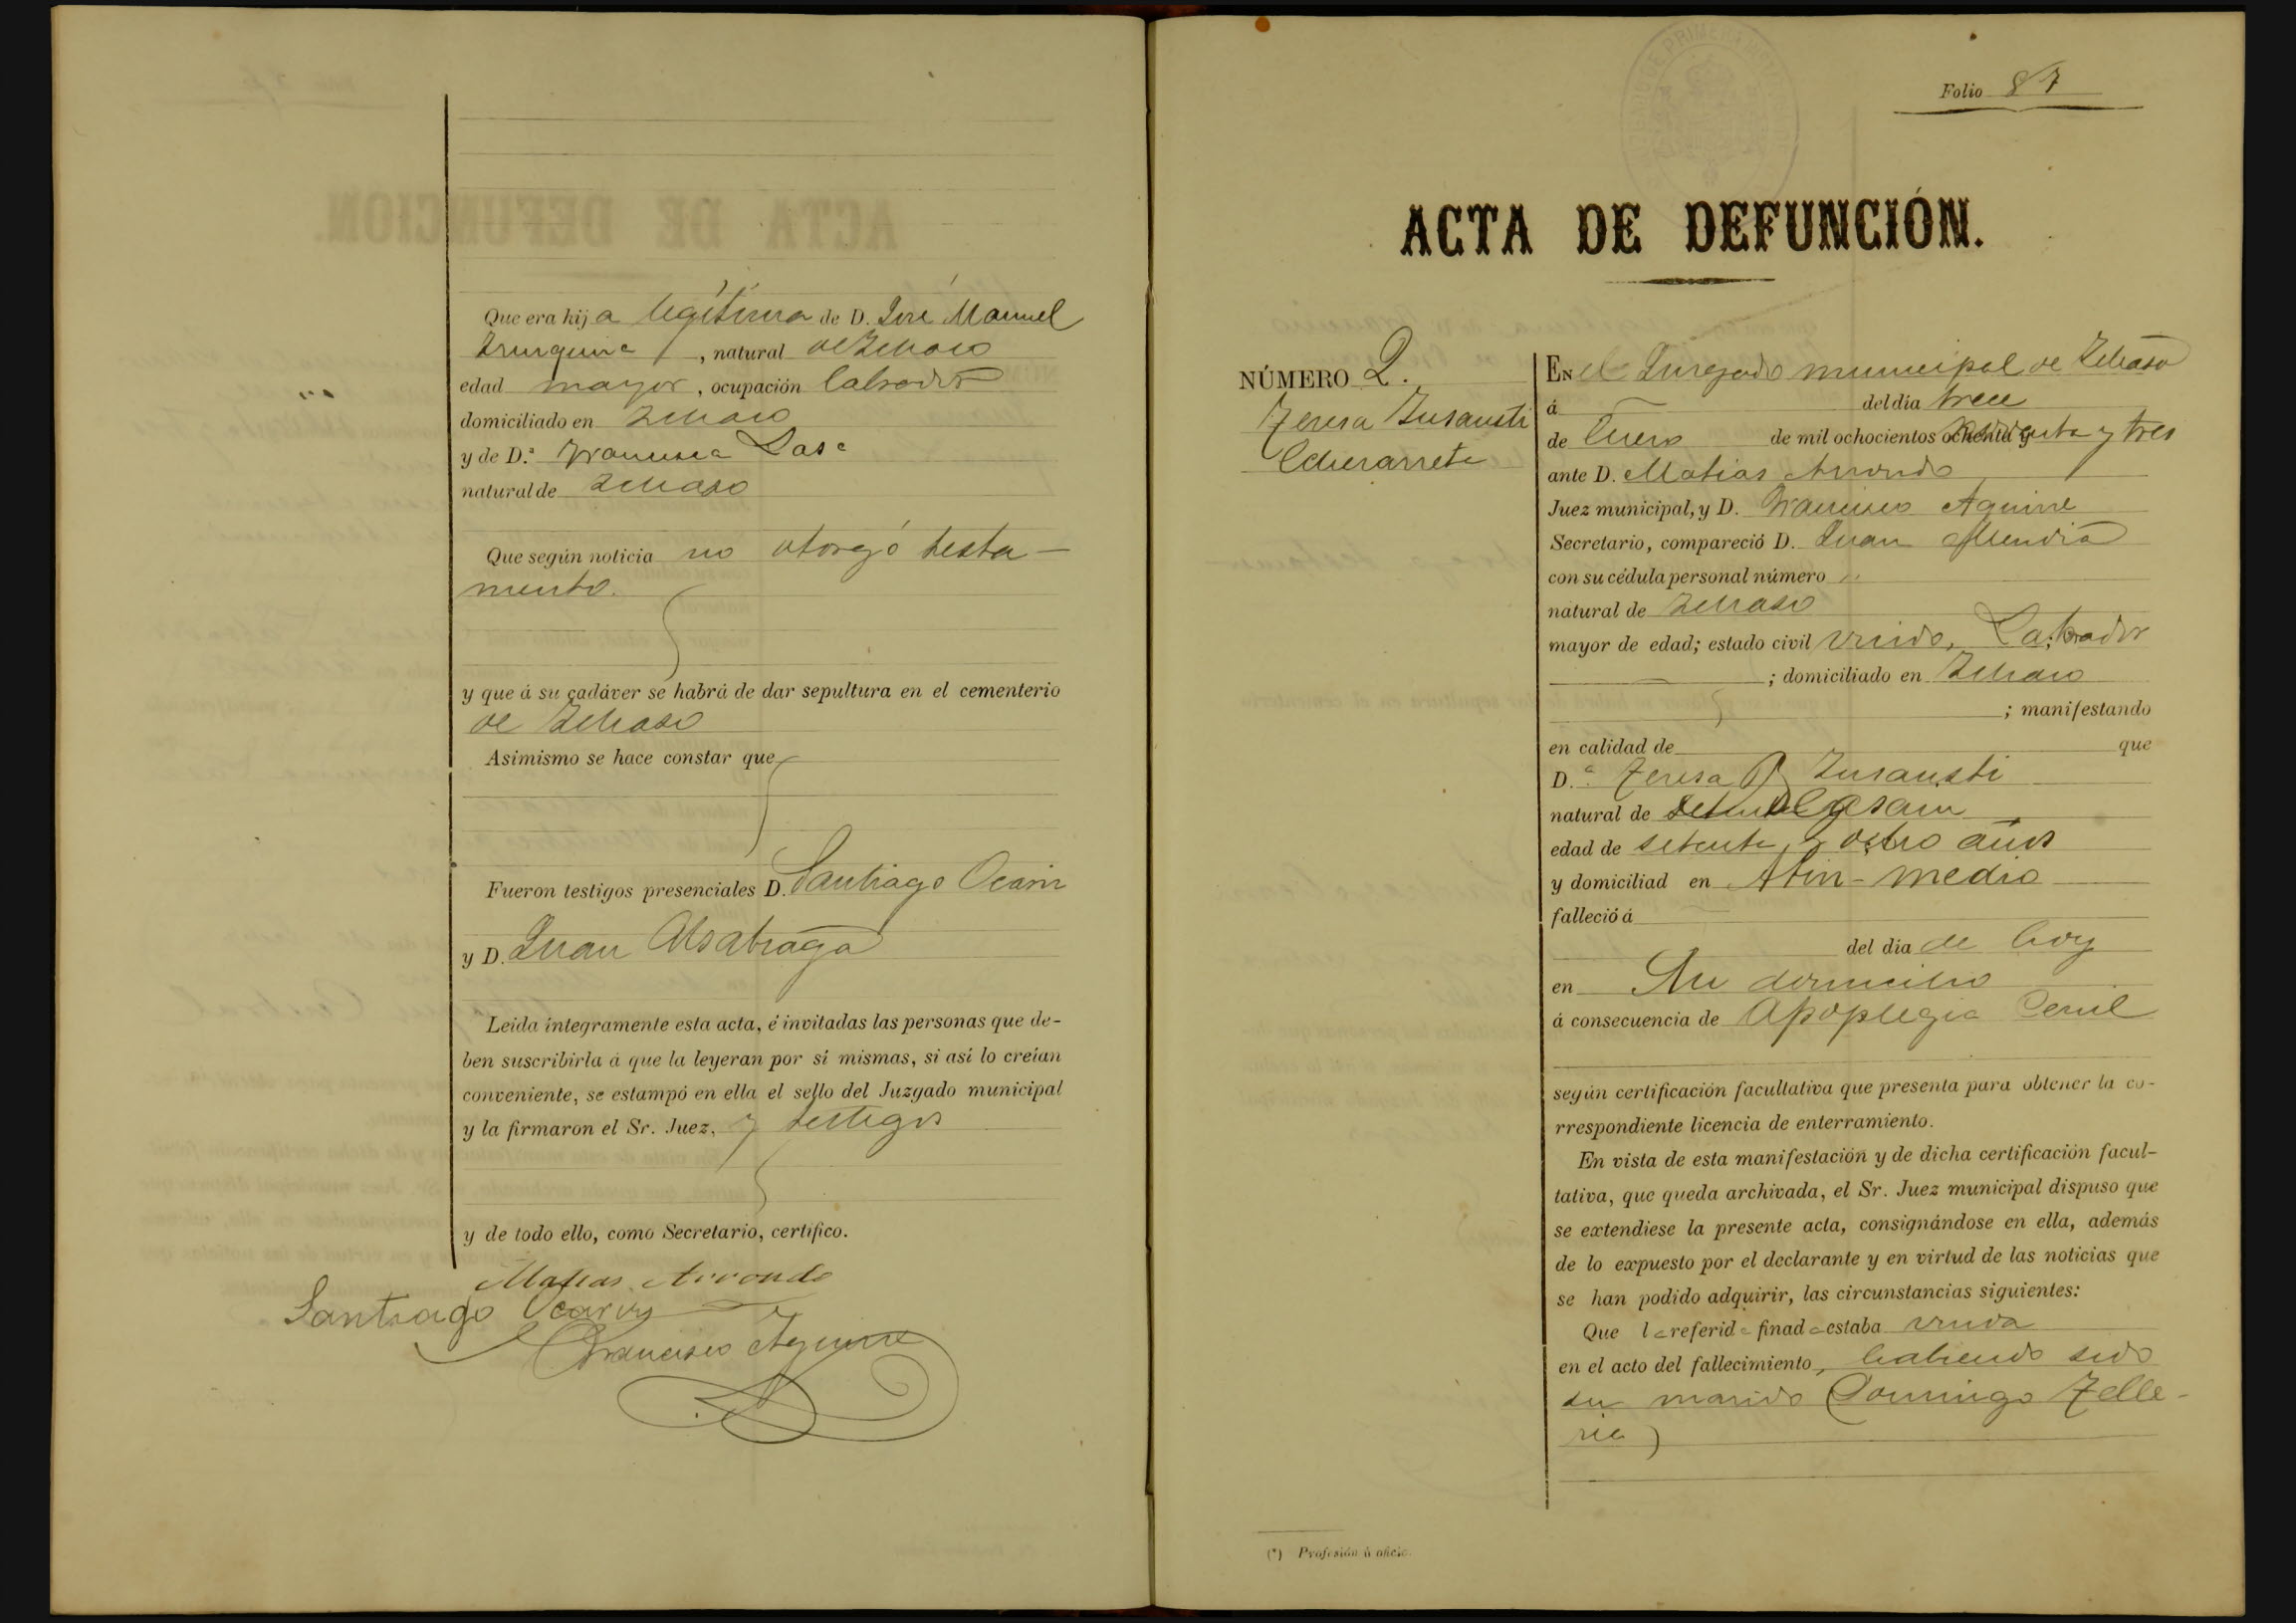 Que era hija legítima de D. José Manuel
Irurquina, natural de Zelhaso
edad mayor, ocupación labrador
domiciliado en
y de D.ª Francisca Lasa
natural de
Que según noticia no otorgó testa-
mento.
y que á su cadáver se habrá de dar sepultura en el cementerio
de
Asimismo se hace constar que
Fueron testigos presenciales D. Santiago Ocariz
y D. Juan Alsatraga
Leida íntegramente esta acta, é invitadas las personas que de-
ben suscribirla á que la leyeran por sí mismas, si así lo creían
conveniente, se estampó en ella el sello del Juzgado municipal
y la firmaron el Sr. Juez, y testigos
y de todo ello, como Secretario, certifico.
Matias Arrondo
Santiago Ocariz
Francisco Aguirre
Folio 87
ACTA DE DEFUNCIÓN.
NÚMERO 2.
Teresa Insausti
Echezarreta
En el Juzgado municipal de
á del día trece
de Enero de mil ochocientos ochenta y noventa y tres
ante D. Matias Arrondo
Juez municipal, y D. Francisco Aguirre
Secretario, compareció D. Juan Mendia
con su cédula personal número "
natural de
mayor de edad; estado civil viudo, Labrador
; domiciliado en
; manifestando
en calidad de que
D.ª Teresa Insausti
natural de
edad de setenta y ocho años
y domiciliad en Atin-medio
falleció á
del día de hoy
en Su domicilio
á consecuencia de Apoplegia Senil
según certificación facultativa que presenta para obtener la co-
rrespondiente licencia de enterramiento.
En vista de esta manifestación y de dicha certificación facul-
tativa, que queda archivada, el Sr. Juez municipal dispuso que
se extendiese la presente acta, consignándose en ella, además
de lo expuesto por el declarante y en virtud de las noticias que
se han podido adquirir, las circunstancias siguientes:
Que la referida finada estaba viuda
en el acto del fallecimiento, habiendo sido
su marido (Domingo Telle-
ria)
(*) Profesión ú oficio.